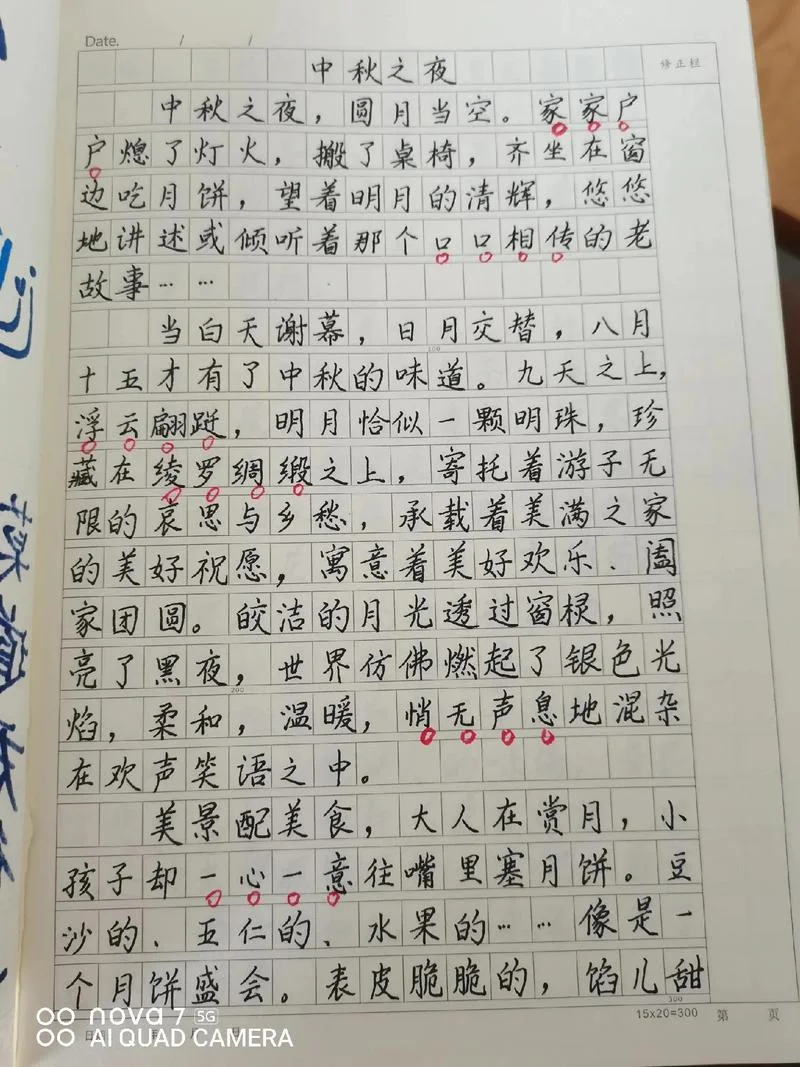 Date. / /
修正栏
中秋之夜
中秋之夜，圆月当空。家家户
户熄了灯火，搬了桌椅，齐坐在窗
边吃月饼，望着明月的清辉，悠悠
地讲述或倾听着那个口口相传的老
故事……
当白天谢幕，日月交替，八月
100
十五才有了中秋的味道。九天之上，
浮云翩跹，明月恰似一颗明珠，珍
藏在绫罗绸缎之上，寄托着游子无
限的哀思与乡愁，承载着美满之家
的美好祝愿，寓意着美好欢乐、阖
家团圆。皎洁的月光透过窗棂，照
亮了黑夜，世界仿佛燃起了银色光
200
焰，柔和，温暖，悄无声息地混杂
在欢声笑语之中。
美景配美食，大人在赏月，小
孩子却一心一意往嘴里塞月饼。豆
沙的、五仁的、水果的……像是一
个月饼盛会。表皮脆脆的，馅儿甜
300
15x20=300 第 页
nova 7 5G
AI QUAD CAMERA